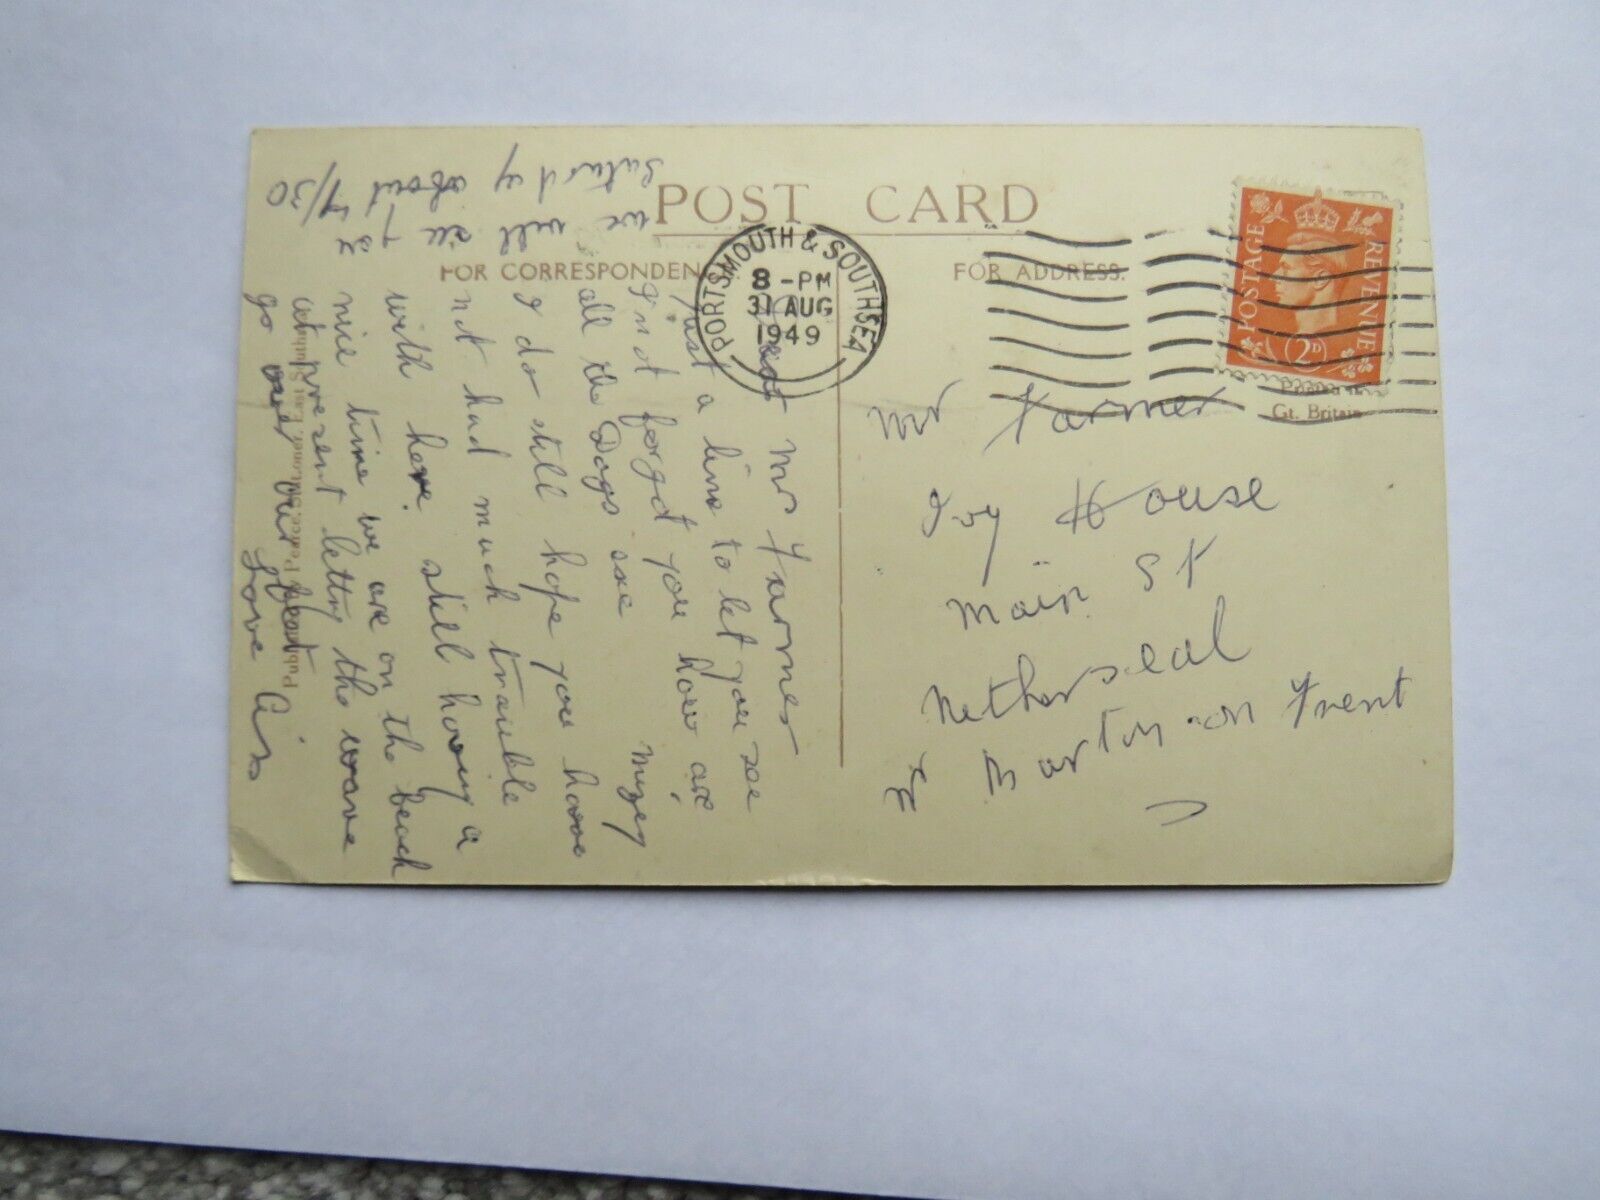 POST CARD
FOR CORRESPONDEN
FOR ADDRESS.
PORTSMOUTH & SOUTHSEA
8 - PM
31 AUG
1949
POSTAGE
REVENUE
2D
Printed in
Gt. Britain
Mrs Farmer
Just a line to let you see
I not forgot you how are
all the Dogs
I do still hope you have
not had much trouble
with here still having a
nice time we are on the beach
at present letting the wave
go over our feet
Love Cis
we will see
Saturday about
7/30
Mr Farmer
Ivy House
Main St
Netherseal
Burton-on Trent